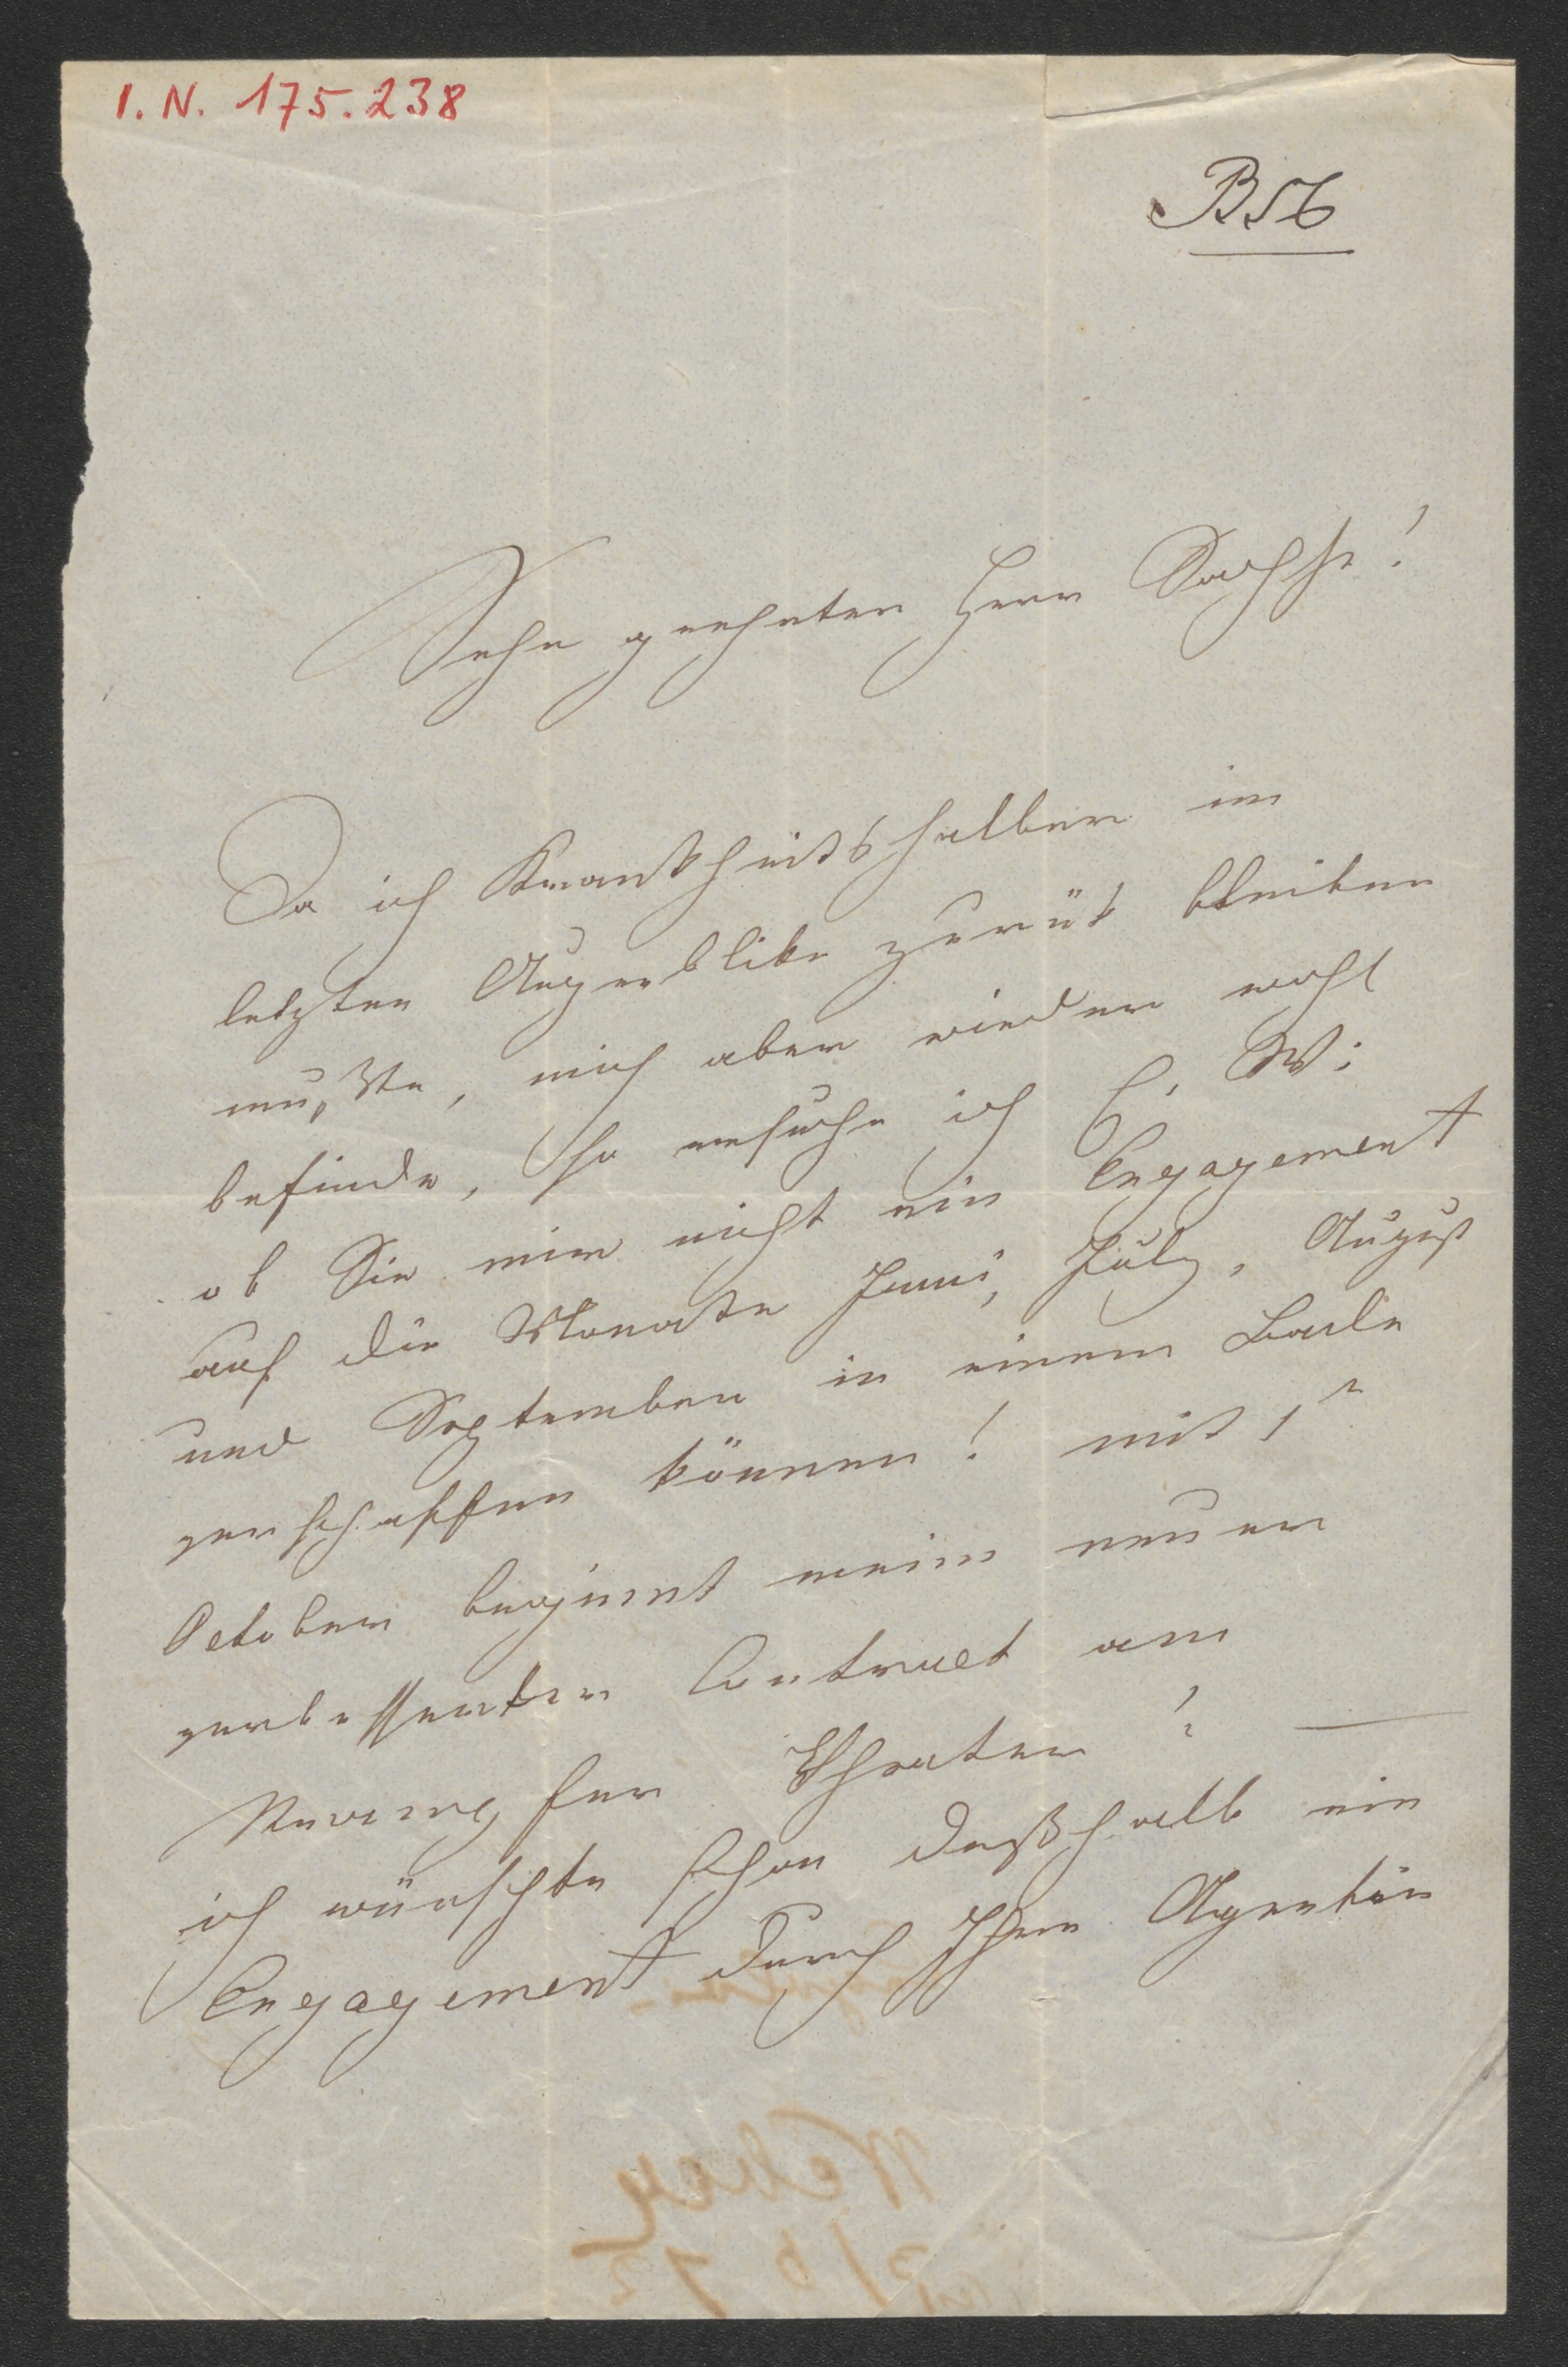 I. N. 175.238
B56
Sehr geehrter Herr Sachse!
Da ich Krankheitshalber im
letzten Augenblike zurük bleiben
mußte, mich aber wieder wohl
befinde, so ersuche ich E. W:
ob Sie mir nicht ein Engagement
auf die Monate Juni, July, August
und September in einem Bade
verschaffen können! mit 1
October beginnt mein neuer
verbesserter Contract am
Theater!
ich wünschte schon deßhalb ein
Engagement durch Ihre Agentur